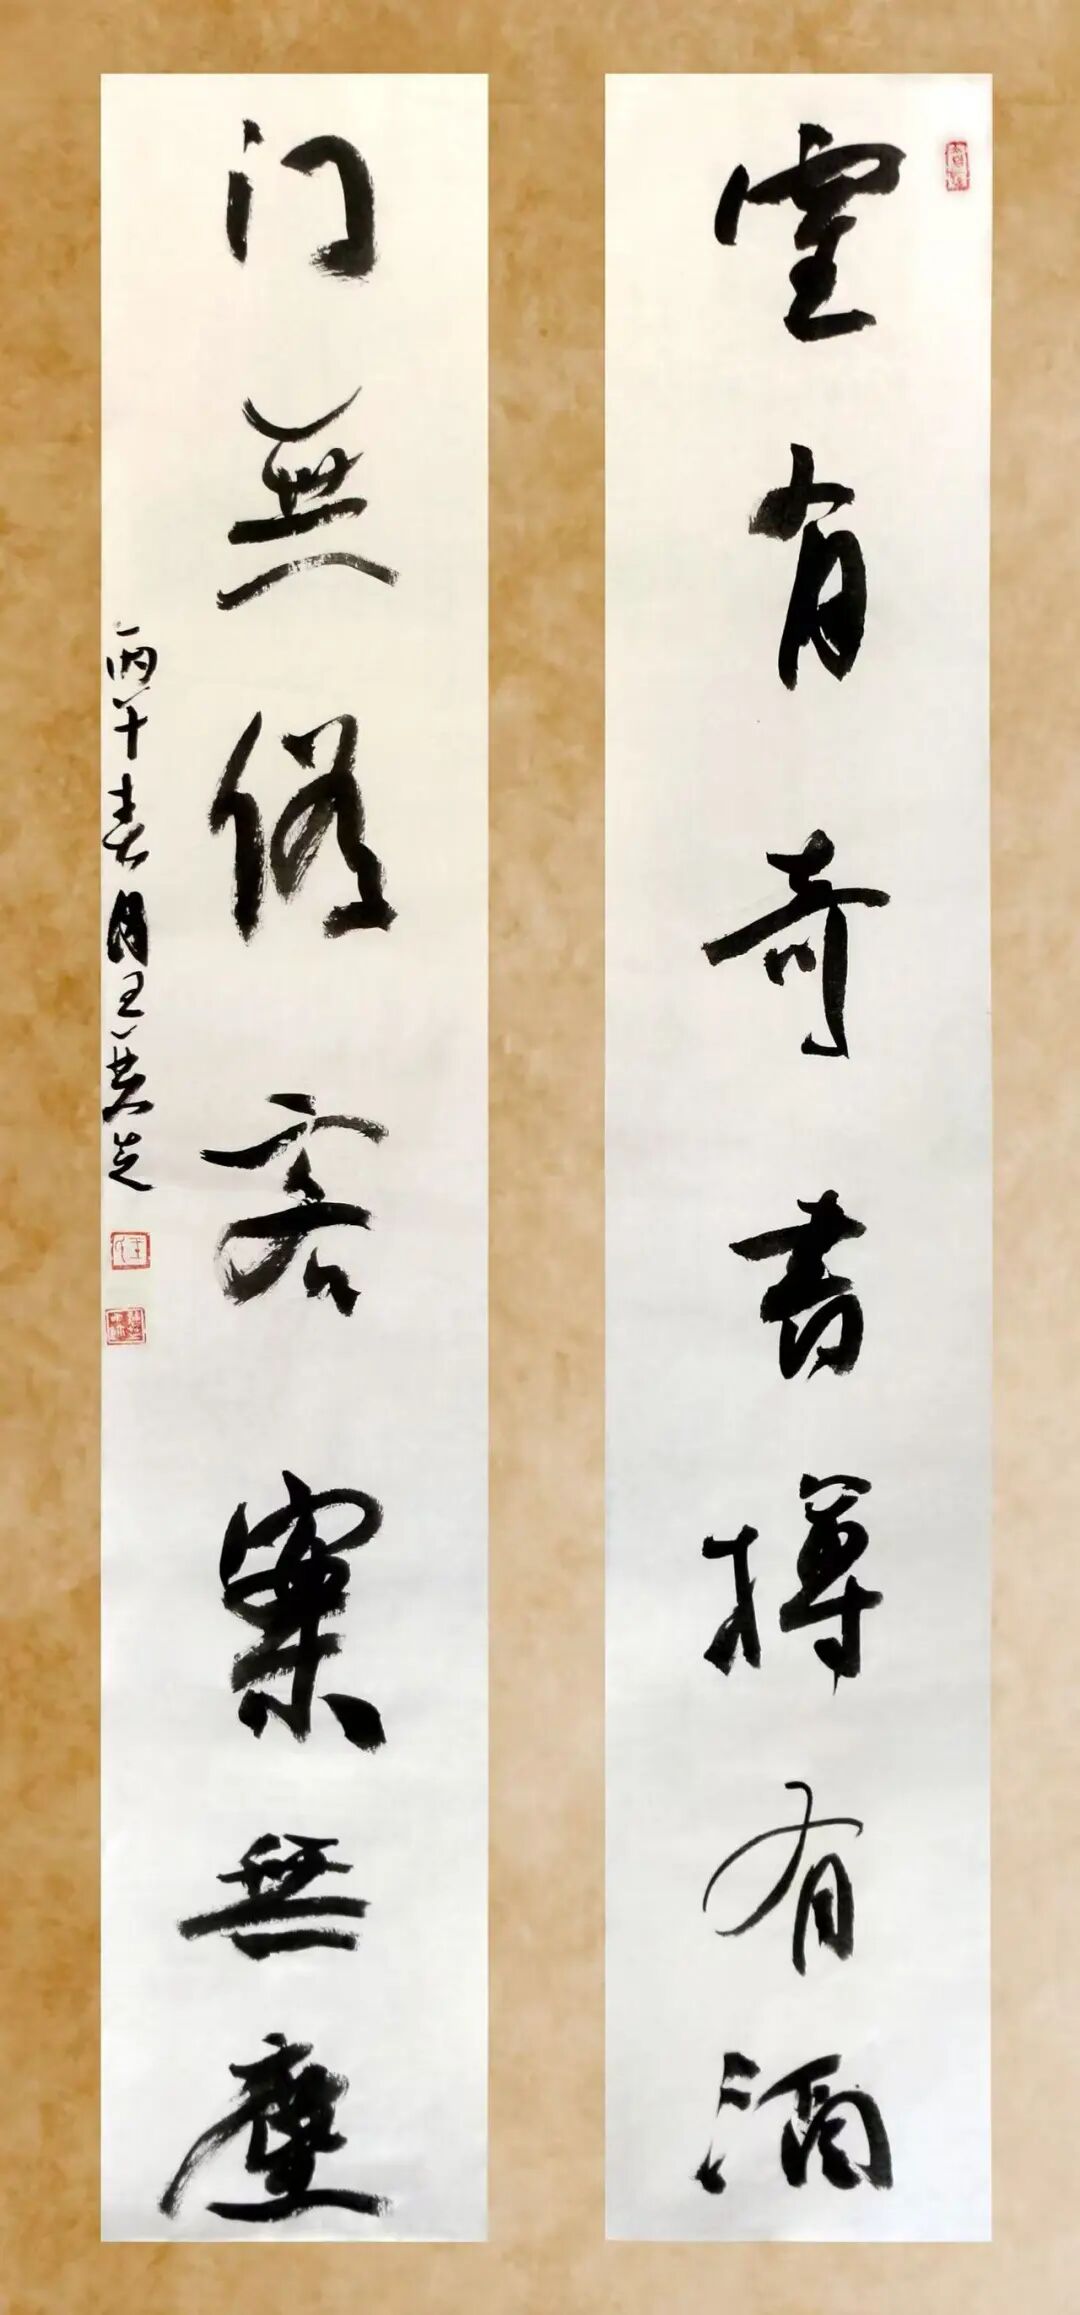 室有奇書樽有酒
门無俗客案無塵
丙午春月王